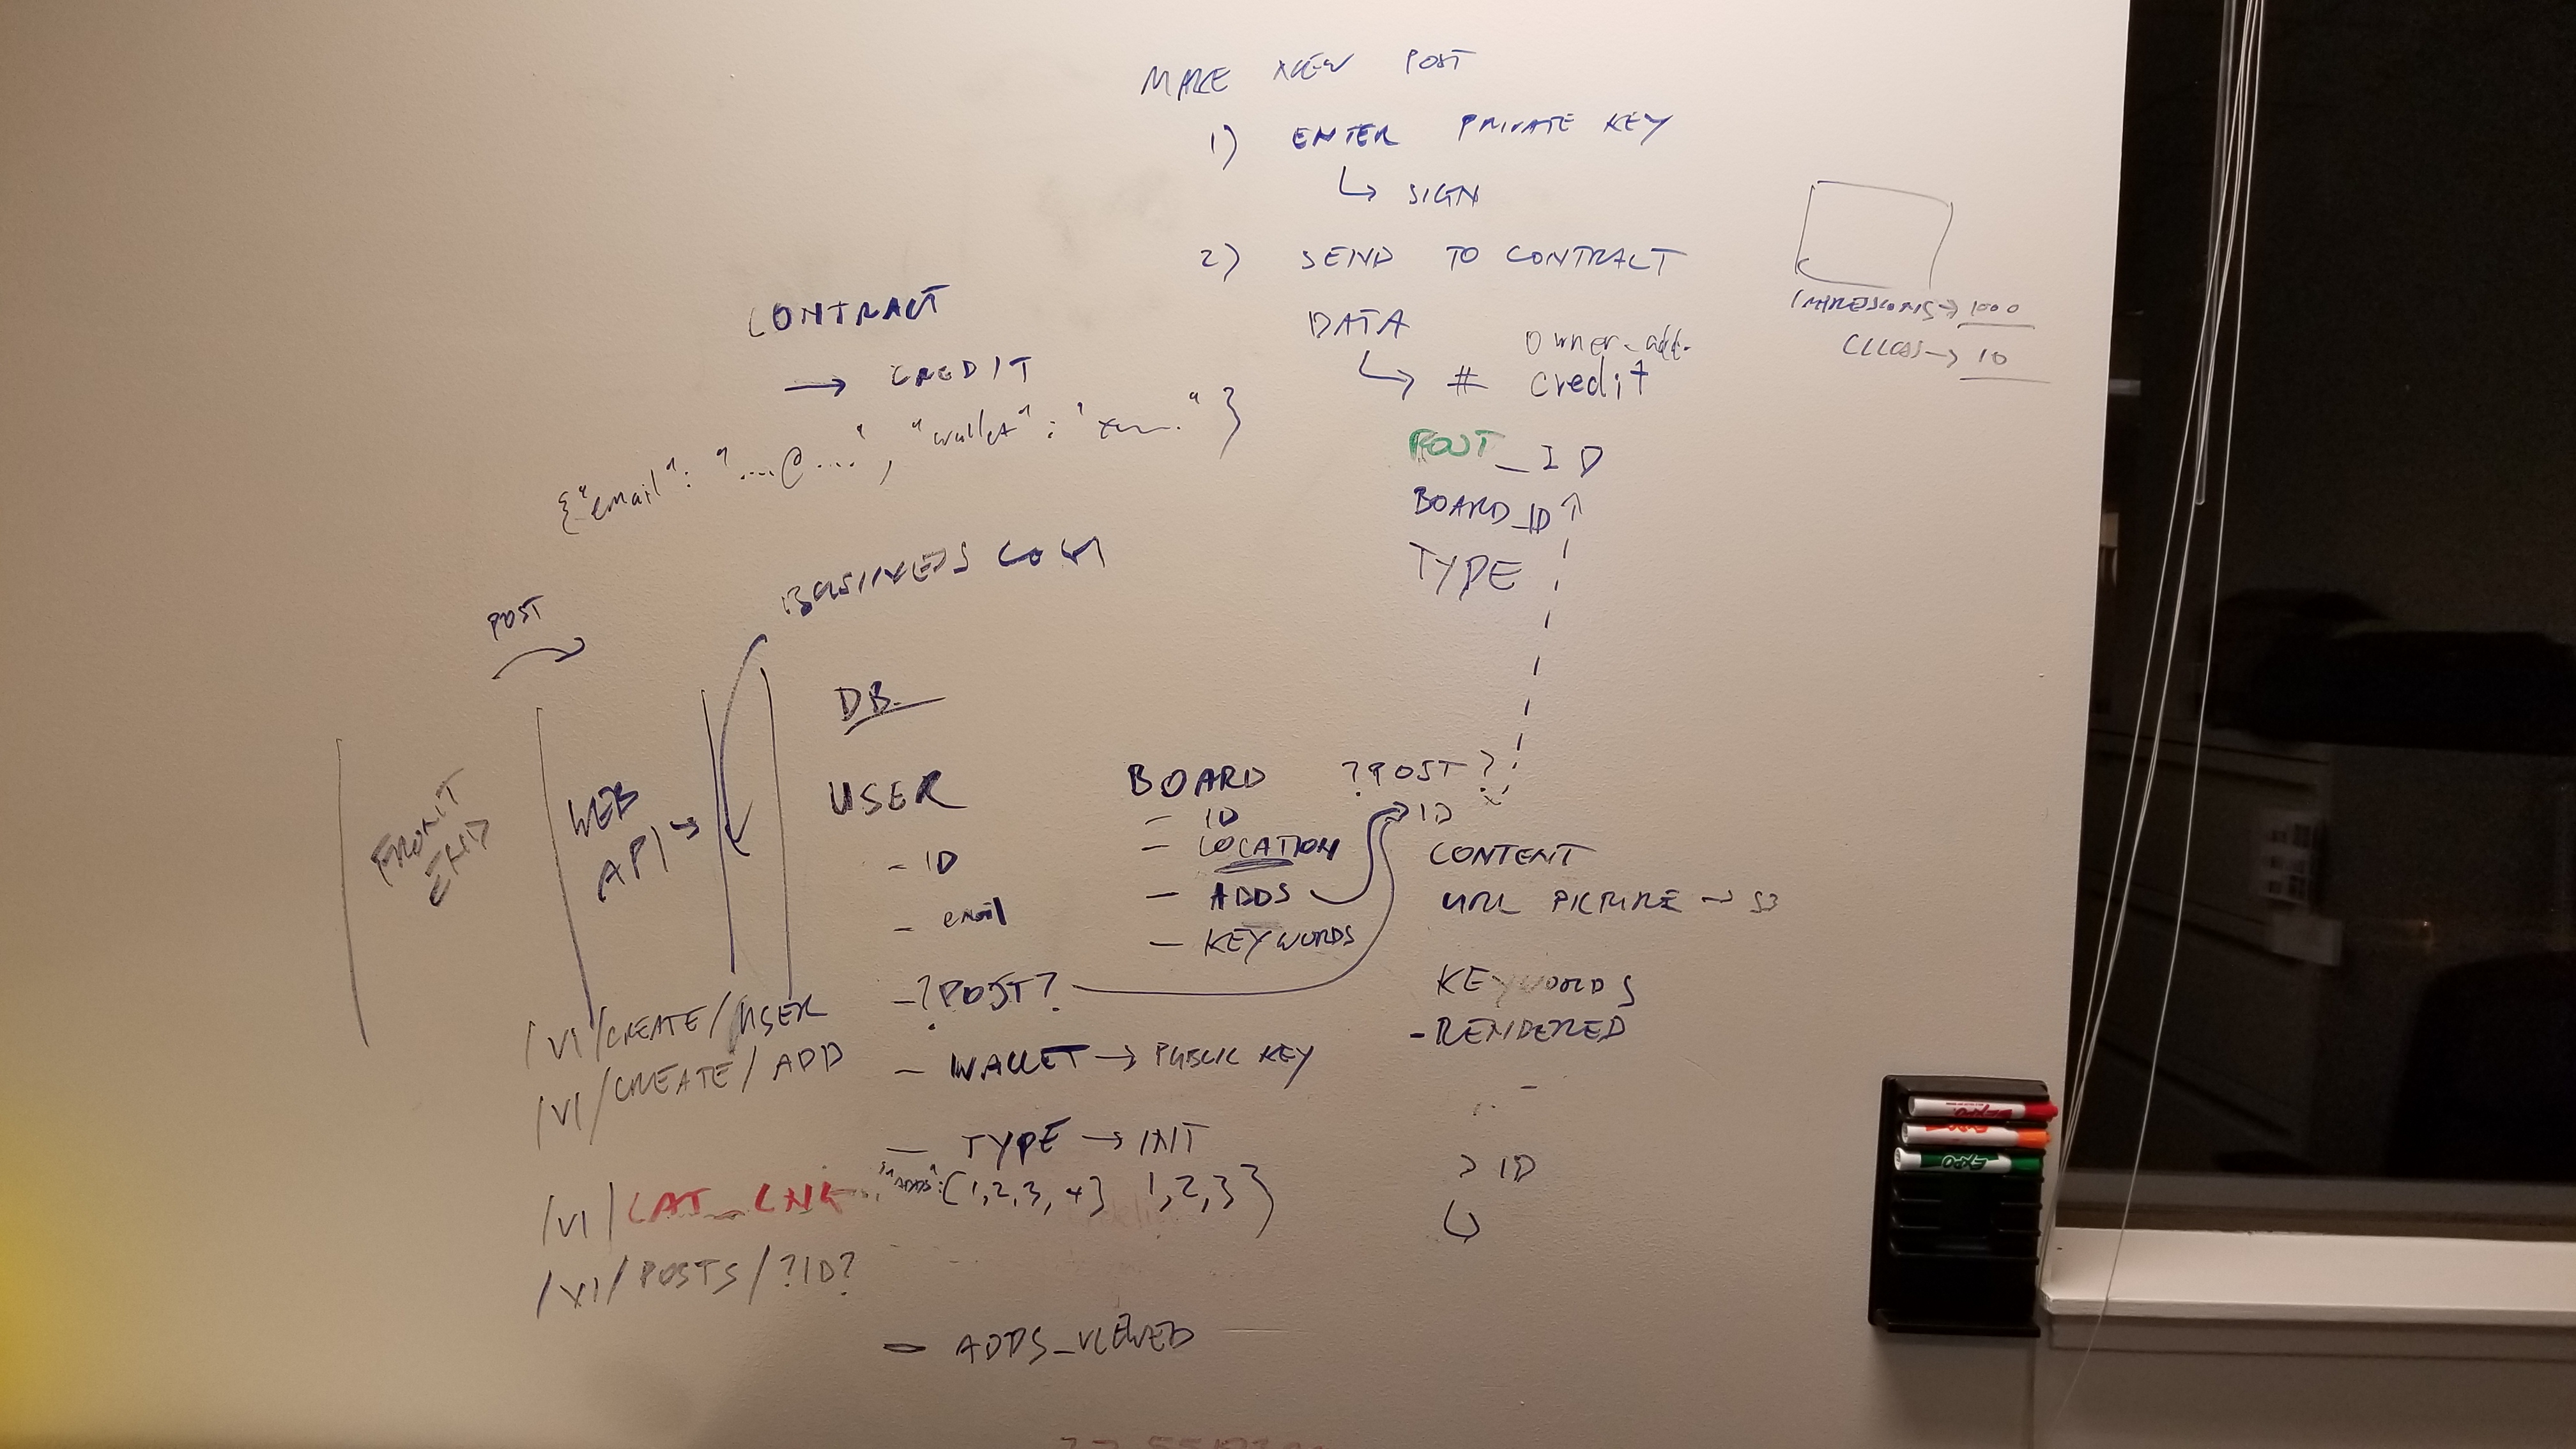 MAKE NEW POST
1) ENTER PRIVATE KEY
↳ SIGN
2) SEND TO CONTRACT
DATA
owner_add.
↳ # credit
POST_ID
BOARD_ID
TYPE
IMPRESSIONS → 1000
→ 10
CONTRACT
→ CREDIT
{"email": "....@....", "wallet": " "}
BUSINESS
POST
FRONT
END
WEB
API →
DB
USER
- ID
- email
- ?POST?
- WALLET → PUBLIC KEY
- TYPE → INIT
[1,2,3,4] 1,2,3}
- ADDS_VIEWED
BOARD
- ID
- LOCATION
- ADDS
- KEYWORDS
?POST?
ID
CONTENT
URL PICTURE → S3
KEYWORDS
- RENDERED
ID
/V1/CREATE/USER
/V1/CREATE/ADD
/V1/
/V1/POSTS/?ID?
EXPO
EXPO
EXPO